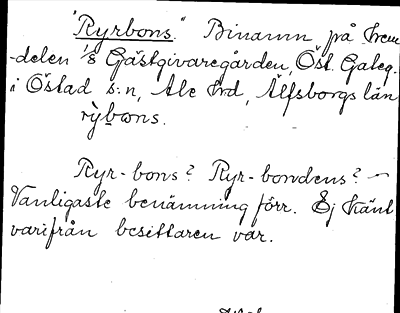 "Ryrbons." Binamn på hem-
-delen 1/8 Gästgivaregården, Öst. Galeg.
i Östad s:n, Ale hd, Älfsborgs län
rỳbons.
Ryr-bons? Ryr-bondens? —
Vanligaste benämning förr. Ej känt
varifrån besittaren var.